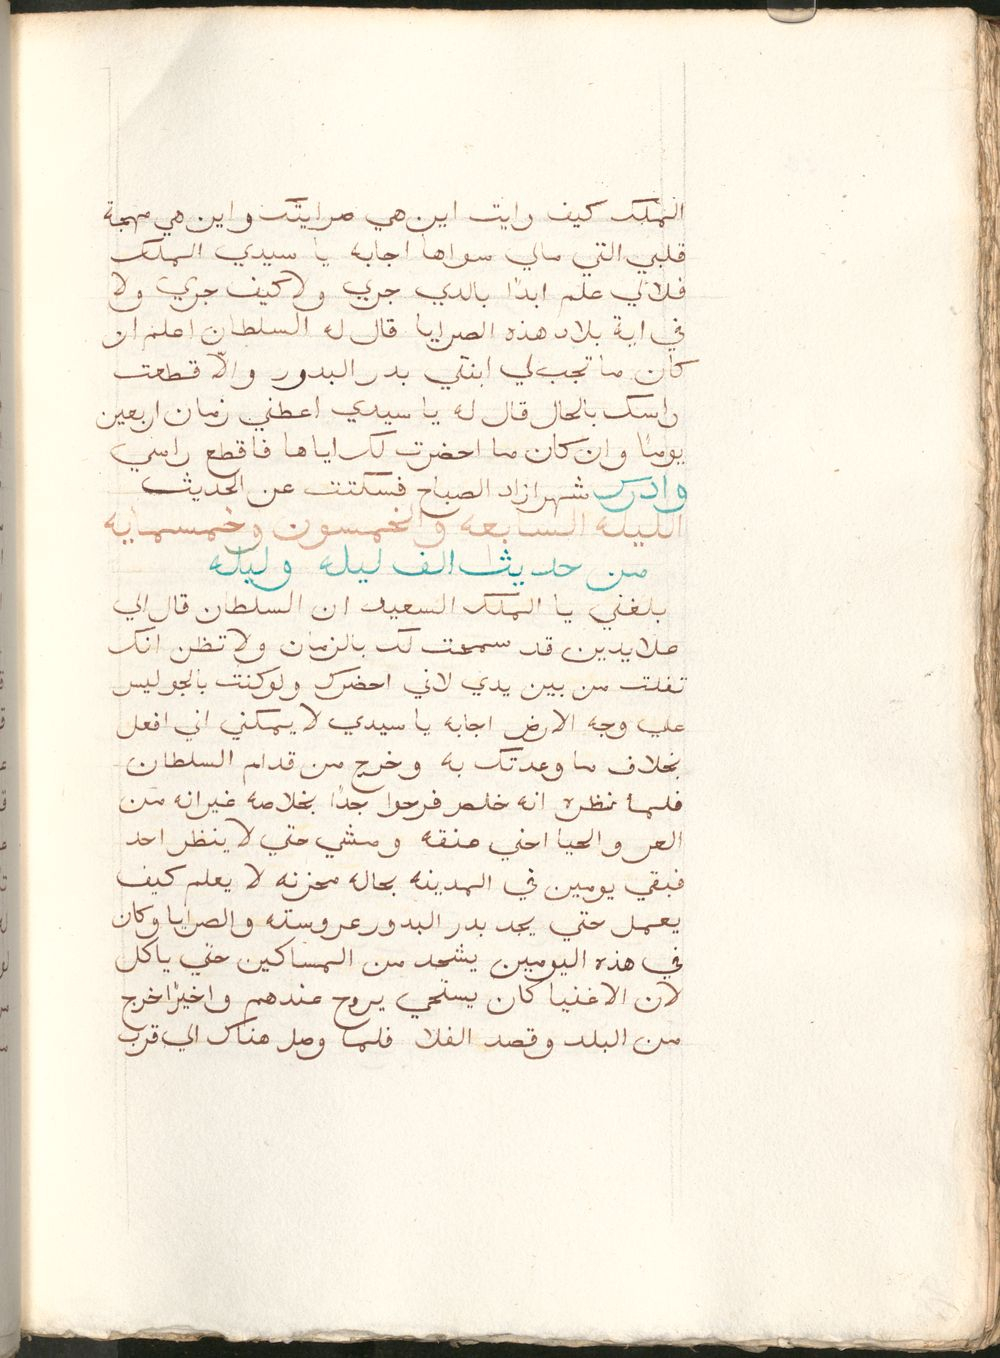 الملك كيف رايت اين هي صرايتك واين هي مهجة
قلبي التي مالي سواها اجابه يا سيدي الملك
فلالي علم ابدًا بالدي جري ولا كيف جري ولا
في اية بلاد هذه الصرايا قال له السلطان اعلم ان
كان ما تجب لي ابنتي بدر البدور والّا قطعت
راسك بالحال قال له يا سيدي اعطني زمان اربعين
يومًا وان كان ما احضرت لك اياها فاقطع راسي
وادرك شهرازاد الصباح فسكتت عن الحديث
الليله السابعه والخمسون وخمسمايه
من حديث الف ليله وليله
بلغني يا الملك السعيد ان السلطان قال الي
علايدين قد سمحت لك بالزمان ولا تظن انك
تفلت من بين يدي لاني احضرك ولو كنت بالجو ليس
علي وجه الارض اجابه يا سيدي لا يمكني اني افعل
بخلاف ما وعدتك به وخرج من قدام السلطان
فلما نظره انه خلص فرحوا جدًا بخلاصه غيرانه من
العر والحيا احني عنقه ومشي حتي لا ينظر احد
فبقي يومين في المدينه بحاله محزنه لا يعلم كيف
يعمل حتي يجد بدر البدور عروسته والصرايا وكان
في هذه اليومين يشحد من المساكين حتي ياكل
لان الاغنيا كان يستحي يروح عندهم واخيرًا خرج
من البلد وقصد الفلا فلما وصل هناك الي قرب